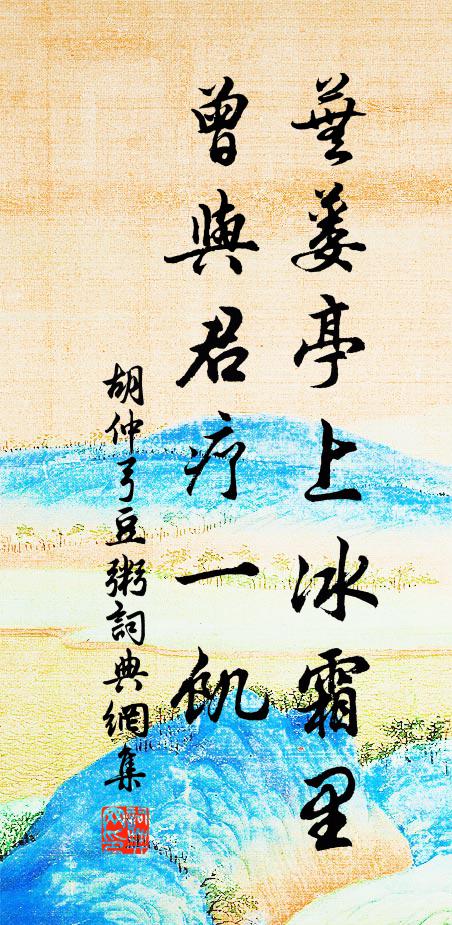 蕪蔞亭上冰霜里
曾與君疗一飢
胡仲弓豆粥詞典網集